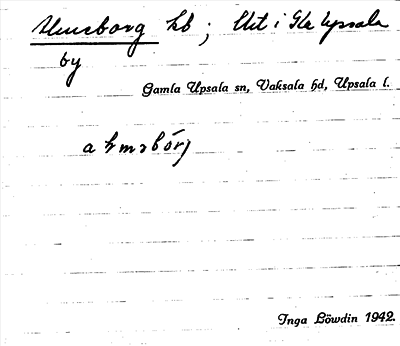 Umeborg hb ; Utt i Gla Upsala
by
Gamla Upsala sn, Vaksala hd, Upsala l.
Inga Löwdin 1942.